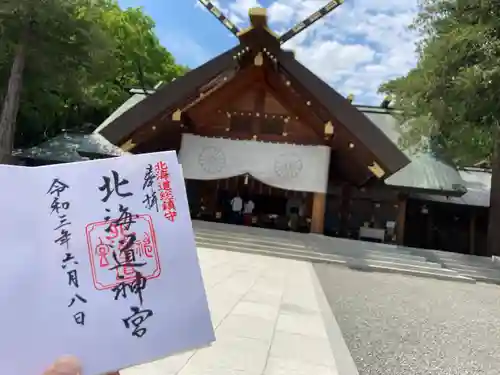 北海道総鎮守
奉拝
北海道神宮
令和三年六月八日